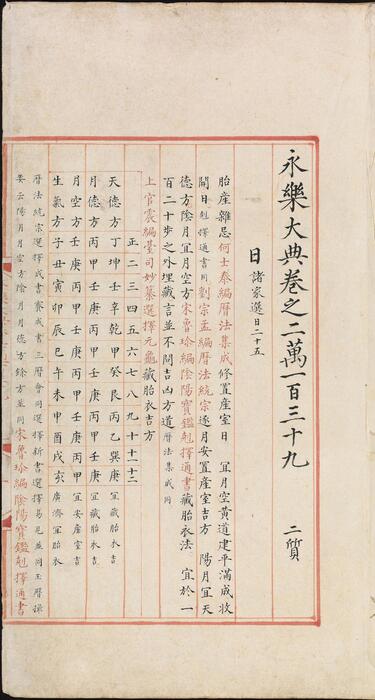 永樂大典卷之二萬一百三十九 二質
日 諸家選日二十五
胎產雜忌何士泰編曆法集成修置產室日 宜月空黃道建平滿成收
開日剋擇通書同劉宗孟編曆法統宗逐月安置產室吉方 陽月宜天
德方陰月宜月空方宋魯珍編陰陽寶鑑剋擇通書藏胎衣法 宜於一
百二十步之外埋藏言並不問吉凶方道曆法集成同
上官震編臺司妙纂選擇元龜藏胎衣吉方
正二三四五六七八九十十一十二
天德方丁坤壬辛乾甲癸艮丙乙巽庚宜藏胎衣吉
月德方丙甲壬庚丙甲壬庚丙甲壬庚宜藏胎衣吉
月空方壬庚丙甲壬庚丙甲壬庚丙甲宜安產室吉
生氣方子丑寅卯辰巳午未申酉戌亥廣濟宜胎衣
曆法統宗選擇成書賽成書三曆會同選擇新書選擇易見並同玉曆
要云陽月月空方陰月月德方餘方並同宋魯珍編陰陽寶鑑剋擇通書